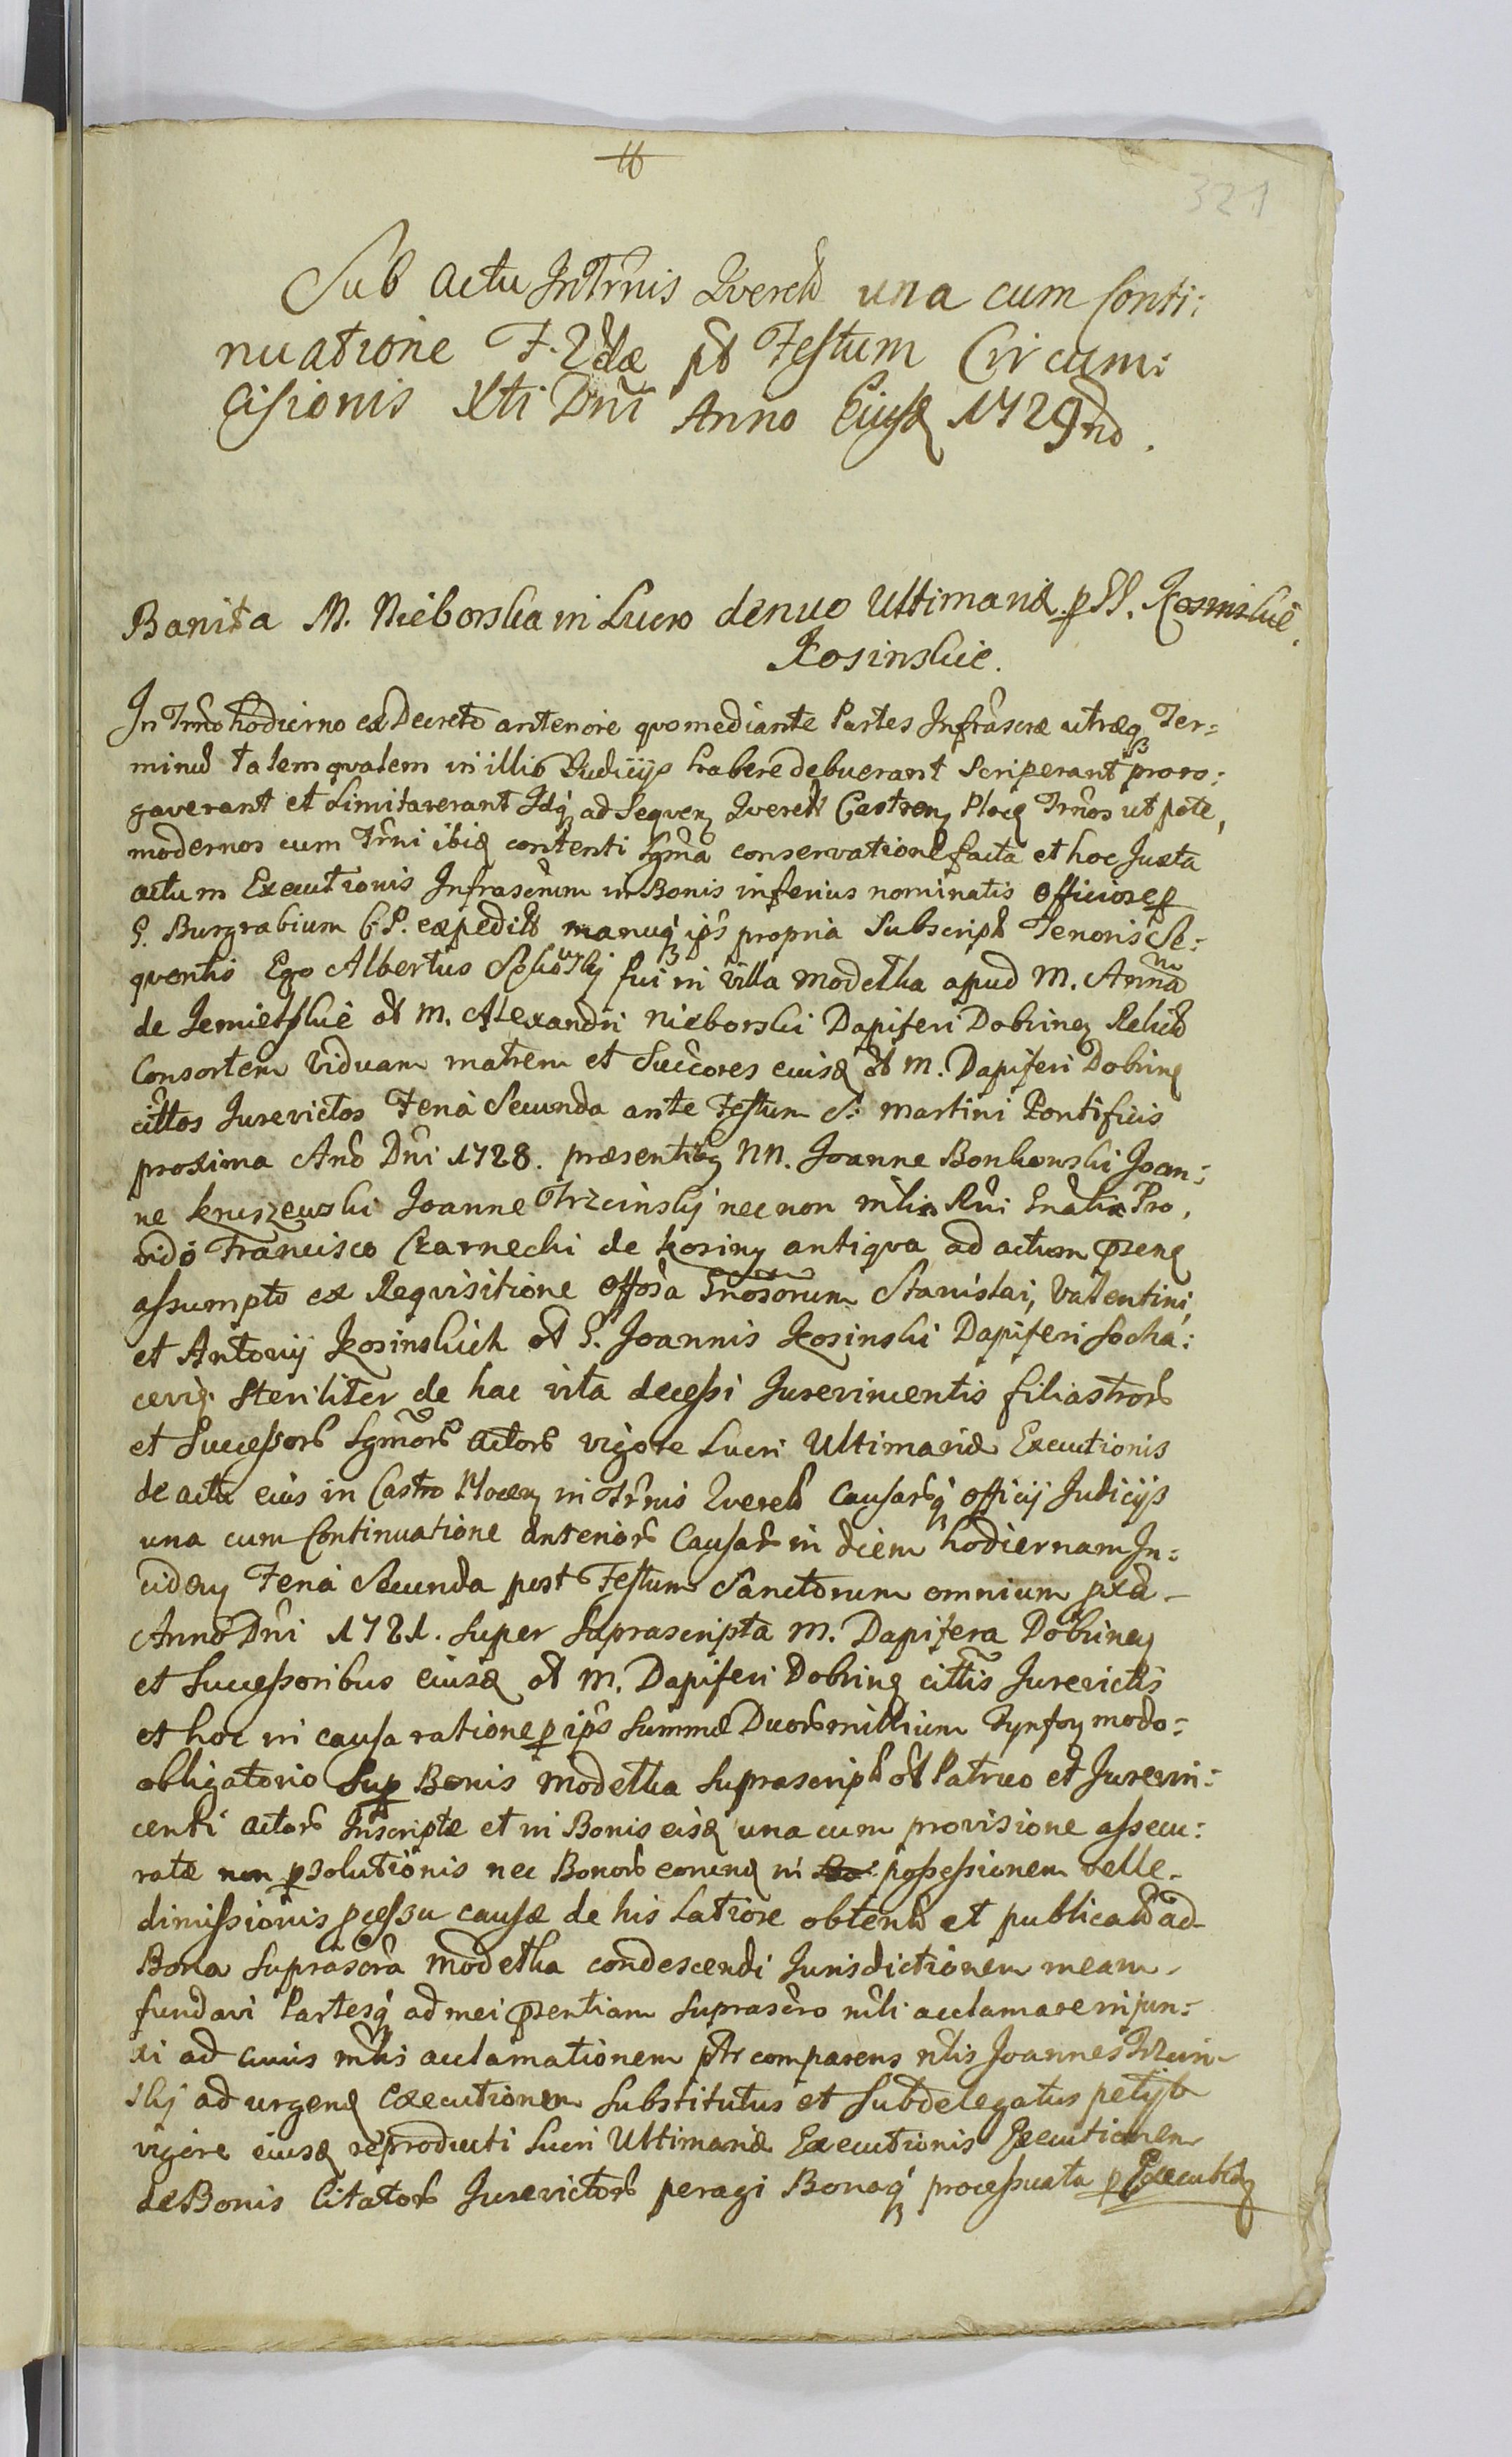 321
Sub Actu In Trnis Querel una cum Conti:
nuatione F. 2dæ pt Festum Circum:
cisionis Xti Dni Anno Eiusd 1729no.
Banita M. Nieborska in Lucro denuo Ultimariæ p SS.
Kosinskie.
In Trno hodierno ex Decreto anteriore quo mediante Partes Infrascræ utræq Ter=
minu talem qualem in illis Judicijs habere debuerant Scripserant proro:
gaverant et Limitaverant Idq ad Sequen Querel Castren Ploc Trnos ut pote,
modernos cum Trni ibid contenti Lgma conservatione facta et hoc Juxta
actum Executionis Infrascrum in Bonis inferius nominatis Officiose p
G. Burgrabium C. P. expedit manuq ips propria Subscript Tenoris Se:
quentis Ego Albertus fui in Villa Modełka apud M. Annam
de Jemielskie ol M. Alexandri Nieborski Dapiferi Dobrinen Relict
Consortem Viduam matrem et Succores eiusd ol M. Dapiferi Dobrin
cittos Jurevictos Feria Secunda ante Festum S. Martini Pontificis
proxima Ano Dni 1728. præsentibg NN. Joanne Bonkowski Joan:
ne Kruszewski Joanne Trzcinskij nec non mlis Rni Gnalis Pro,
vido Francisco Czarnecki de Kosiny antiqua ad actum præn
assumpto ex Requisitione Offosa Gnosorum Stanislai, Valentini,
et Antonij Kosinskich ol G. Joannis Kosinski Dapiferi Socha:
cevi Steriliter de hac vita decessi Jurevincentis filiastror
et Successor Lgmor Actor vigore Lucri Ultimariæ Executionis
de actu eius in Castro Plocen in Trnis Querel Causarq Officij Judicijs
una cum Continuatione Anterior Causar in diem hodiernam In=
ciden Feria Secunda post Festum Sanctorum omnium pxa
Anno Dni 1721. super Suprascripta M. Dapifera Dobrinen
et Successoribus eiusd ol M. Dapiferi Dobrin cittis Jurevictis
et hoc in causa ratione p ips Summæ Duor millium Tynfon modo=
obligatorio Sup Bonis Modełka Suprascript ol Patruo et Jurevin:
centi Actor Inscriptæ et in Bonis eisd una cum provisione assecu:
ratæ non psolutionis nec Bonor eorund in possessionem velle
dimissionis pcessu causæ de his Latiore obtent et publicat ad
Bona Suprascra Modełka condescendi Jurisdictionem meam
fundavi Partesq ad mei præsentiam Suprascro mli acclamare injun:
xi ad cuius mlis acclamationem ptr comparens nlis Joannes Trzcin
skij ad urgend Executionem Substitutus et Subdelegatus petijt
vigore eiusd reproducti Lucri Ultimariæ Executionis Executionem
de Bonis Citator Jurevictor peragi Bonaq processuata p